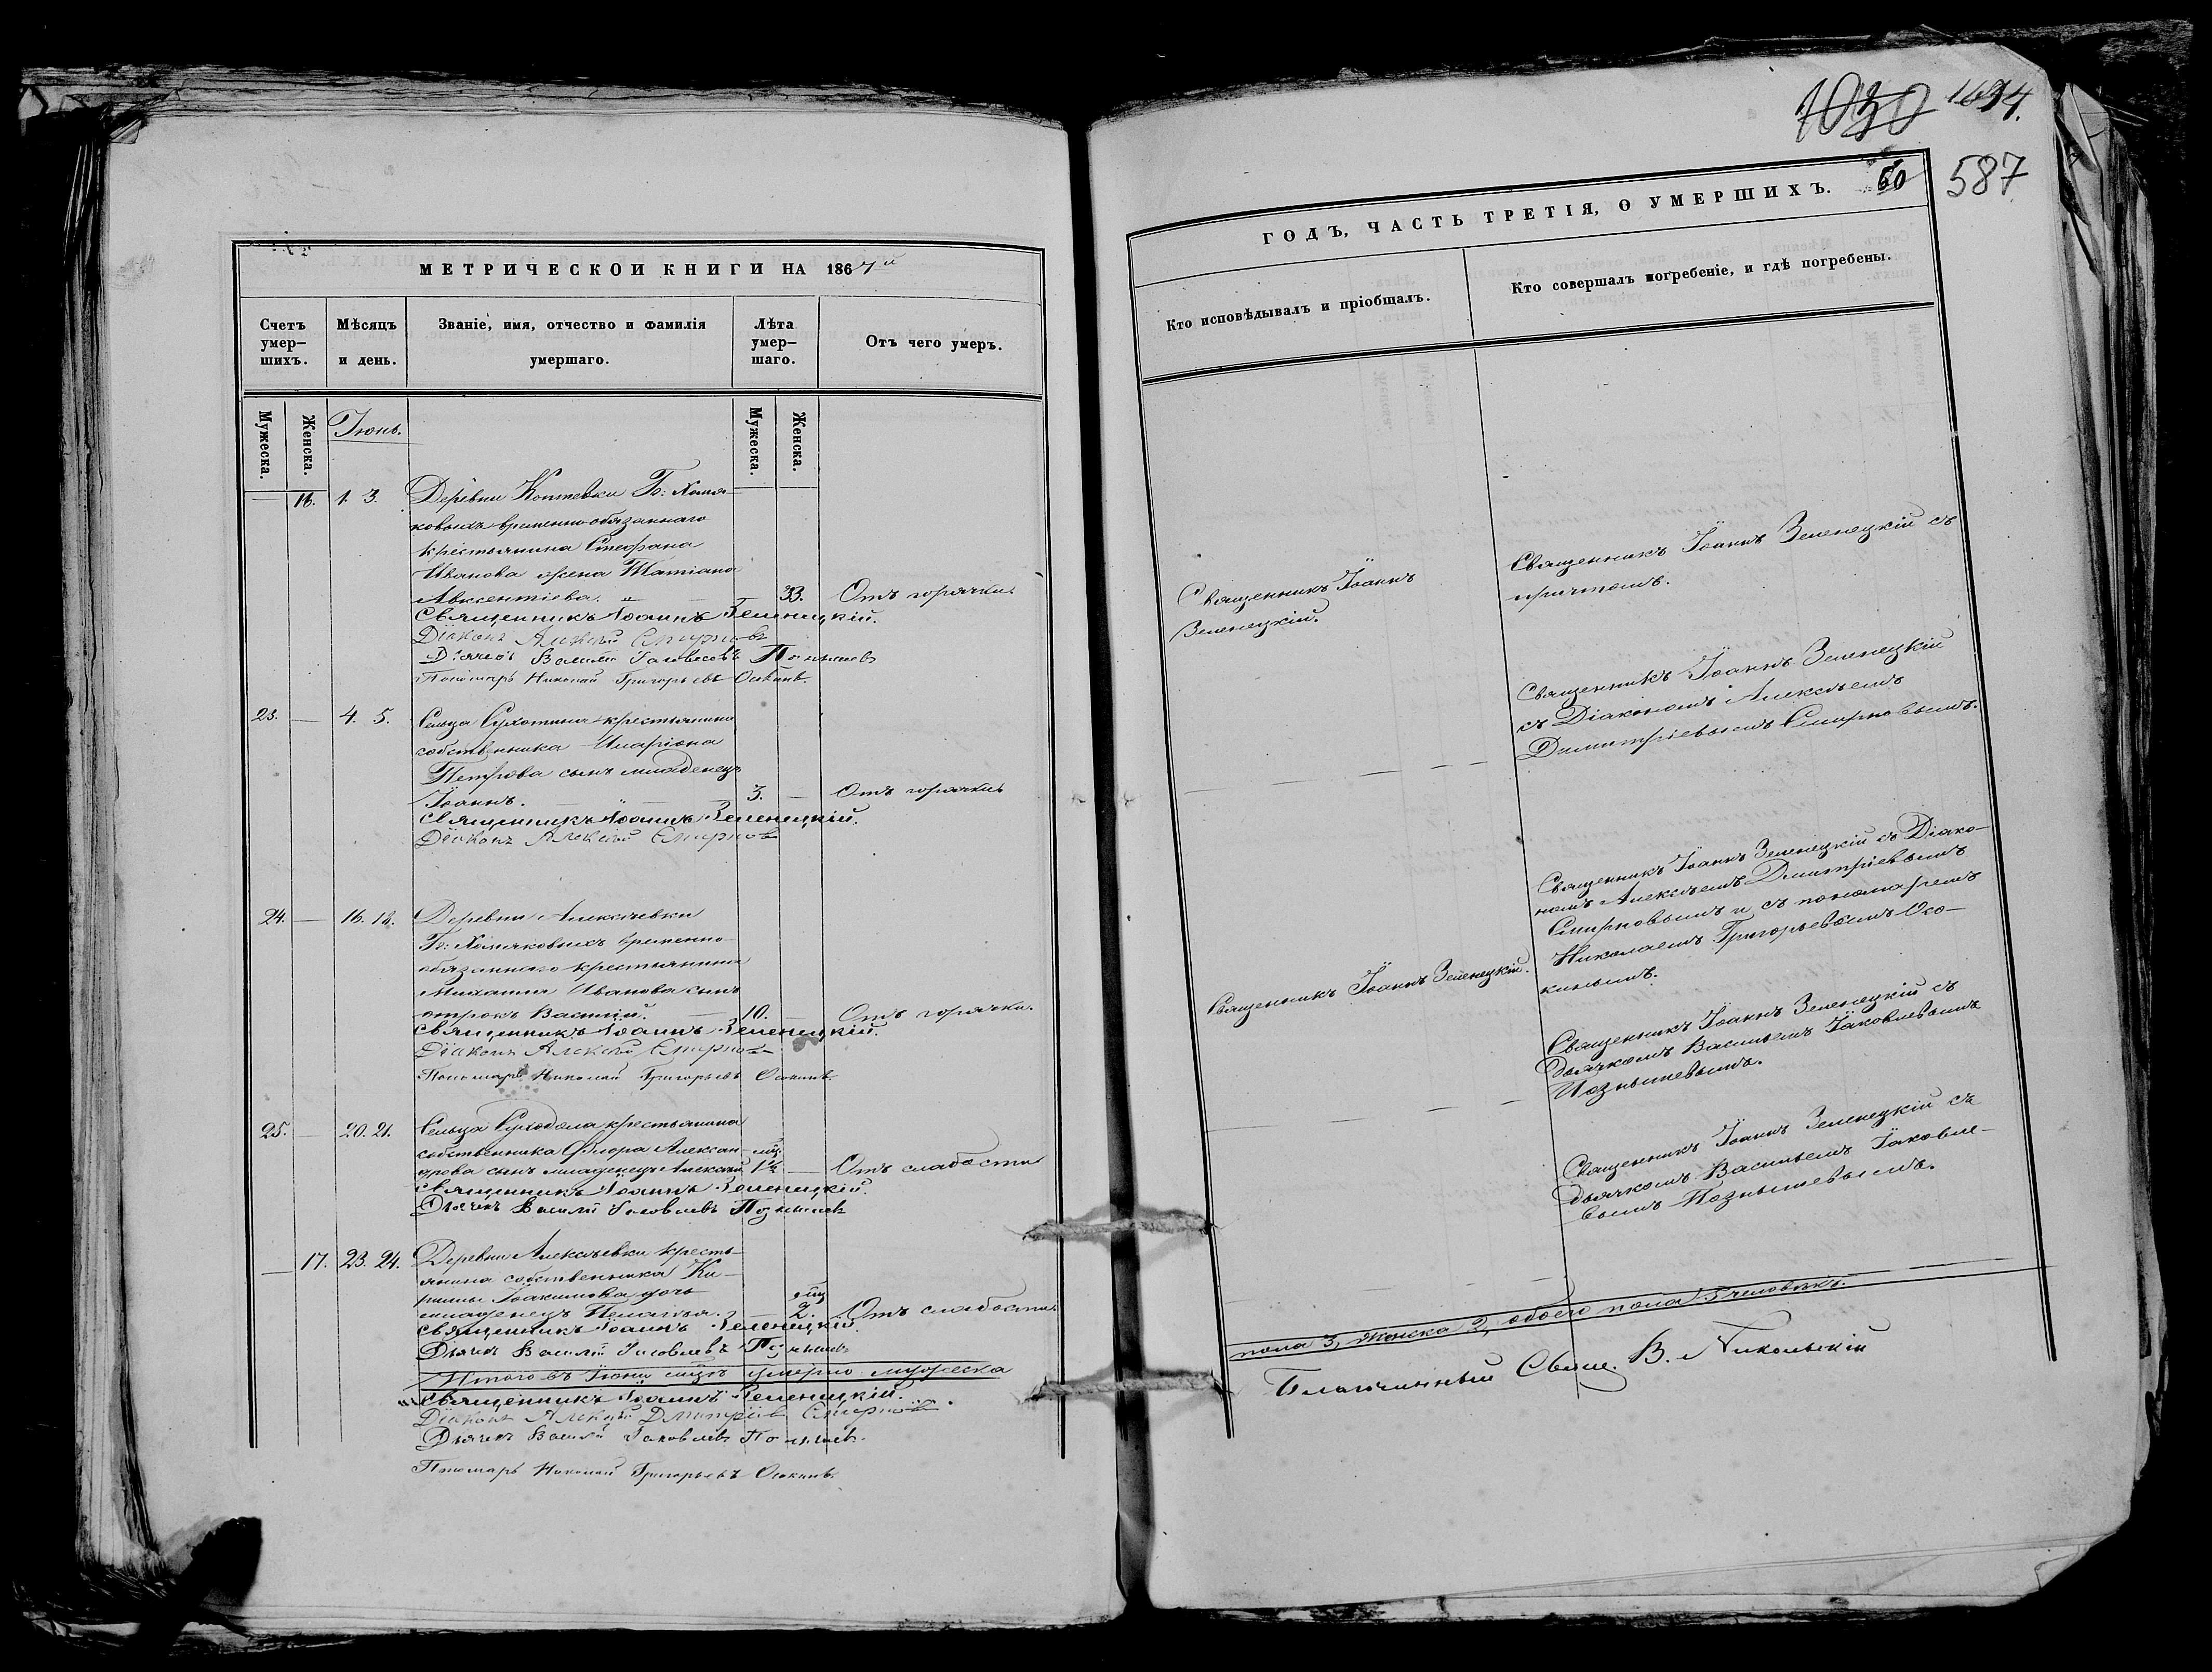 МЕТРИЧЕСКОЙ КНИГИ НА 1867й
Счетъ умер-шихъ.
Мѣсяцъ и день.
Званіе, имя, отчество и фамилія умершаго.
Лѣта умер-шаго.
Отъ чего умеръ.
Мужеска.
Женска.
Іюнь.
Мужеска.
Женска.
— 16. 1. 3. Деревни Коптевки Г: Хомя-
ковыхъ временно-обязаннаго
крестьянина Стефана
Иванова жена Татіана
Авксентіева. — — 33. Отъ горячки.
Священникъ Іоаннъ Зеленецкій.
Діаконъ Алексѣй Смирновъ
Дьячекъ Василій Іаковлевъ Познышевъ
Пономарь Николай Григорьевъ Осокинъ.
23. — 4. 5. Сельца Сухотина крестьянина
собственника Иларіона
Петрова сынъ младенецъ
Іоаннъ. — — 3. — Отъ горячки
Священникъ Іоаннъ Зеленецкій.
Діаконъ Алексѣй Смирновъ
24. — 16. 18. Деревни Алексѣевки
Г: Хомяковыхъ временно-
обязаннаго крестьянина
Михаила Иванова сынъ
отрокъ Василій. — 10. — Отъ горячки.
Священникъ Іоаннъ Зеленецкій.
Діаконъ Алексѣй Смирновъ
Пономарь Николай Григорьевъ Осокинъ.
25. — 20. 21. Сельца Суходола крестьянина
собственника Флора Алексан-
дрова сынъ младенецъ Алексѣй 1½ — Отъ слабости
Священникъ Іоаннъ Зеленецкій.
Дьячекъ Василій Іаковлевъ Познышевъ
— 17. 23. 24. Деревни Алексѣевки кресть-
янина собственника Ки-
рилы Іоакимова дочь
младенецъ Пелагія. — 2. Отъ слабости.
Священникъ Іоаннъ Зеленецкій
Дьячекъ Василій Іаковлевъ Познышевъ
Итого въ Іюнѣ мцѣ умерло мужеска
Священникъ Іоаннъ Зеленецкій.
Діаконъ Алексѣй Дмитріевъ Смирновъ.
Дьячекъ Василій Іаковлевъ Познышевъ.
Пономарь Николай Григорьевъ Осокинъ.
1030 1694.
587
60
ГОДЪ, ЧАСТЬ ТРЕТІЯ, О УМЕРШИХЪ.
Кто исповѣдывалъ и пріобщалъ.
Кто совершалъ погребеніе, и гдѣ погребены.
Священникъ Іоаннъ
Зеленецкій.
Священникъ Іоаннъ Зеленецкій съ
причтомъ.
— — —
Священникъ Іоаннъ Зеленецкій
съ Діакономъ Алексѣемъ
Димитріевымъ Смирновымъ.
Священникъ Іоаннъ Зеленецкій.
Священникъ Іоаннъ Зеленецкій съ Діако-
номъ Алексѣемъ Дмитріевымъ
Смирновымъ и съ пономаремъ
Николаемъ Григорьевымъ Осо-
кинымъ.
— — —
Священникъ Іоаннъ Зеленецкій съ
дьячкомъ Васильемъ Іаковлевымъ
Познышевымъ.
Священникъ Іоаннъ Зеленецкій съ
дьячкомъ Васильемъ Іаковле-
вымъ Познышевымъ.
пола 3, женска 2, обоего пола 5 человѣкъ.
Благочинный Свящ. В. Никольскій